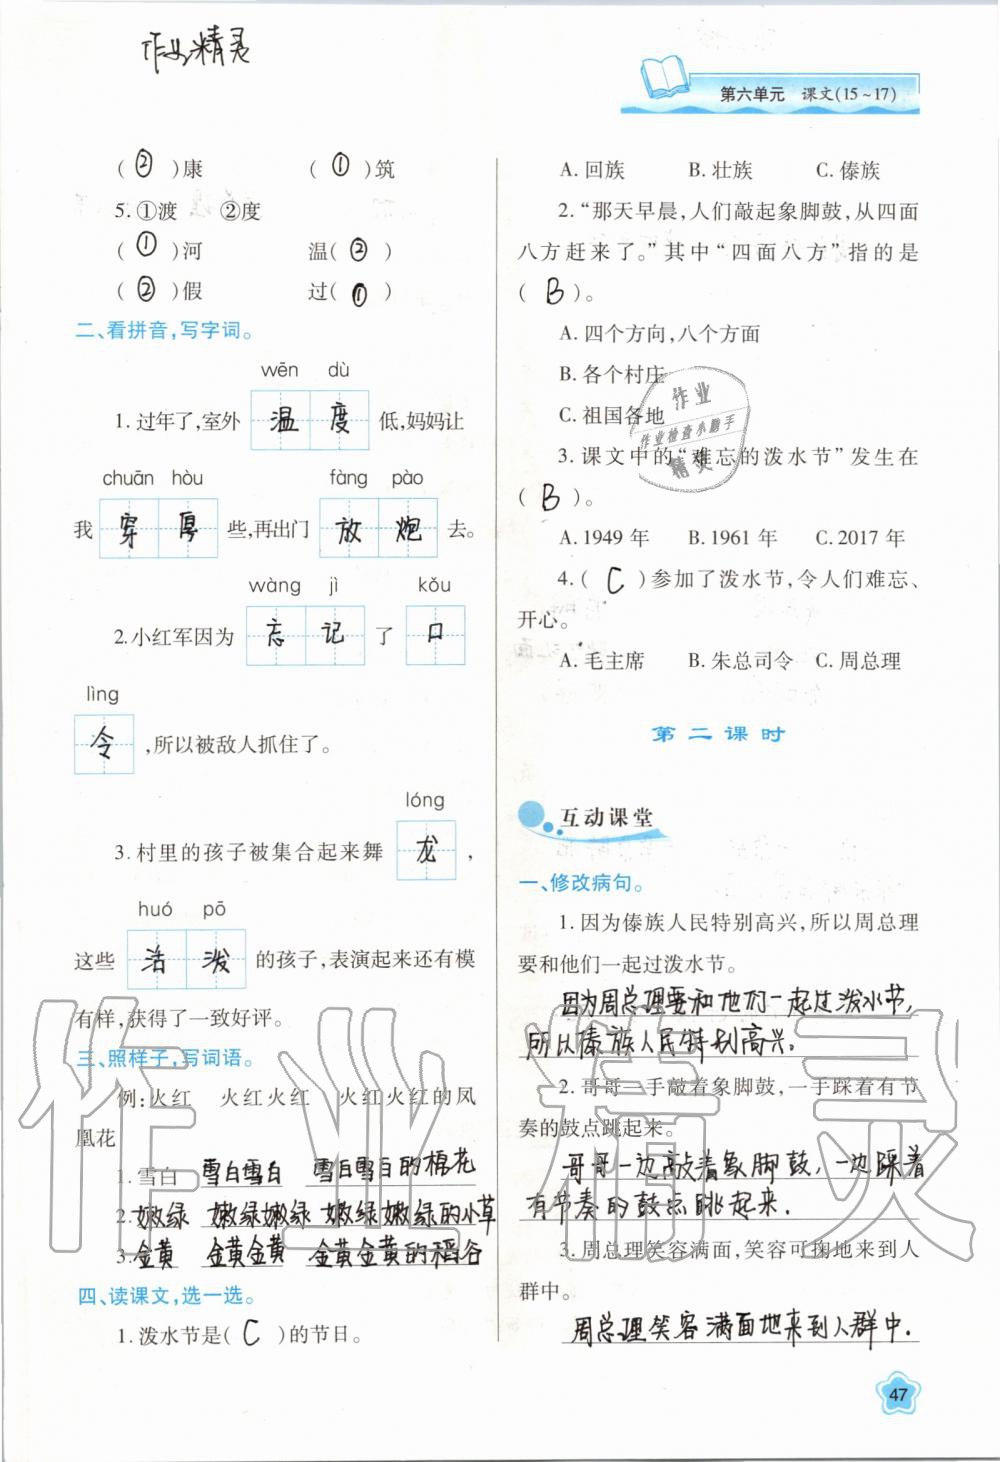 作业精灵
第六单元 课文(15~17)
( ② )康 ( ① )筑
5.①渡 ②度
( ① )河 温( ② )
( ② )假 过( ① )
二、看拼音,写字词。
wēn dù
1.过年了,室外 温 度 低,妈妈让
chuān hòu fàng pào
我 穿 厚 些,再出门 放 炮 去。
wàng jì kǒu
2.小红军因为 忘 记 了 口
lìng
令 ,所以被敌人抓住了。
lóng
3.村里的孩子被集合起来舞 龙 ,
huó pō
这些 活 泼 的孩子,表演起来还有模
有样,获得了一致好评。
三、照样子,写词语。
例:火红 火红火红 火红火红的凤
凰花
1.雪白 雪白雪白 雪白雪白的棉花
2.嫩绿 嫩绿嫩绿 嫩绿嫩绿的小草
3.金黄 金黄金黄 金黄金黄的稻谷
四、读课文,选一选。
1.泼水节是( C )的节日。
A.回族 B.壮族 C.傣族
2.“那天早晨,人们敲起象脚鼓,从四面
八方赶来了。”其中“四面八方”指的是
( B )。
A.四个方向,八个方面
B.各个村庄
C.祖国各地
3.课文中的“难忘的泼水节”发生在
( B )。
A.1949年 B.1961年 C.2017年
4.( C )参加了泼水节,令人们难忘、
开心。
A.毛主席 B.朱总司令 C.周总理
第二课时
互动课堂
一、修改病句。
1.因为傣族人民特别高兴,所以周总理
要和他们一起过泼水节。
因为周总理要和他们一起过泼水节,
所以傣族人民特别高兴.
2.哥哥一手敲着象脚鼓,一手踩着有节
奏的鼓点跳起来。
哥哥一边敲着象脚鼓,一边踩着
有节奏的鼓点跳起来.
3.周总理笑容满面,笑容可掬地来到人
群中。
周总理笑容满面地来到人群中.
47
作业
作业检查小助手
精灵
作业精灵